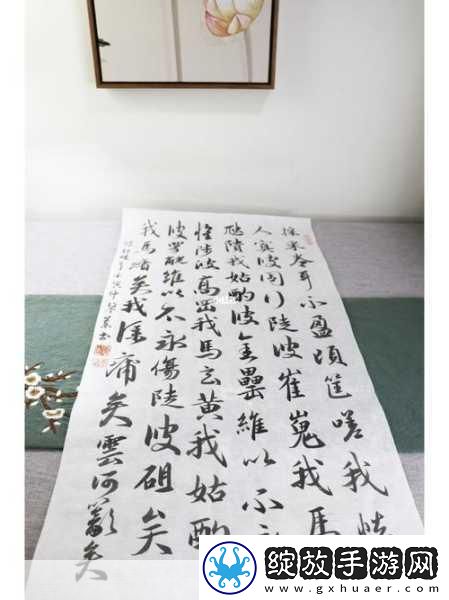 採采卷耳不盈頃筐嗟我懷
人寘彼周行陟彼崔嵬我馬
虺隤我姑酌彼金罍維以不永
懷陟彼高岡我馬玄黃我姑酌
彼兕觥維以不永傷陟彼砠矣
我馬瘏矣我僕痡矣雲何籲矣
绽放手游网
www.gxhuaer.com